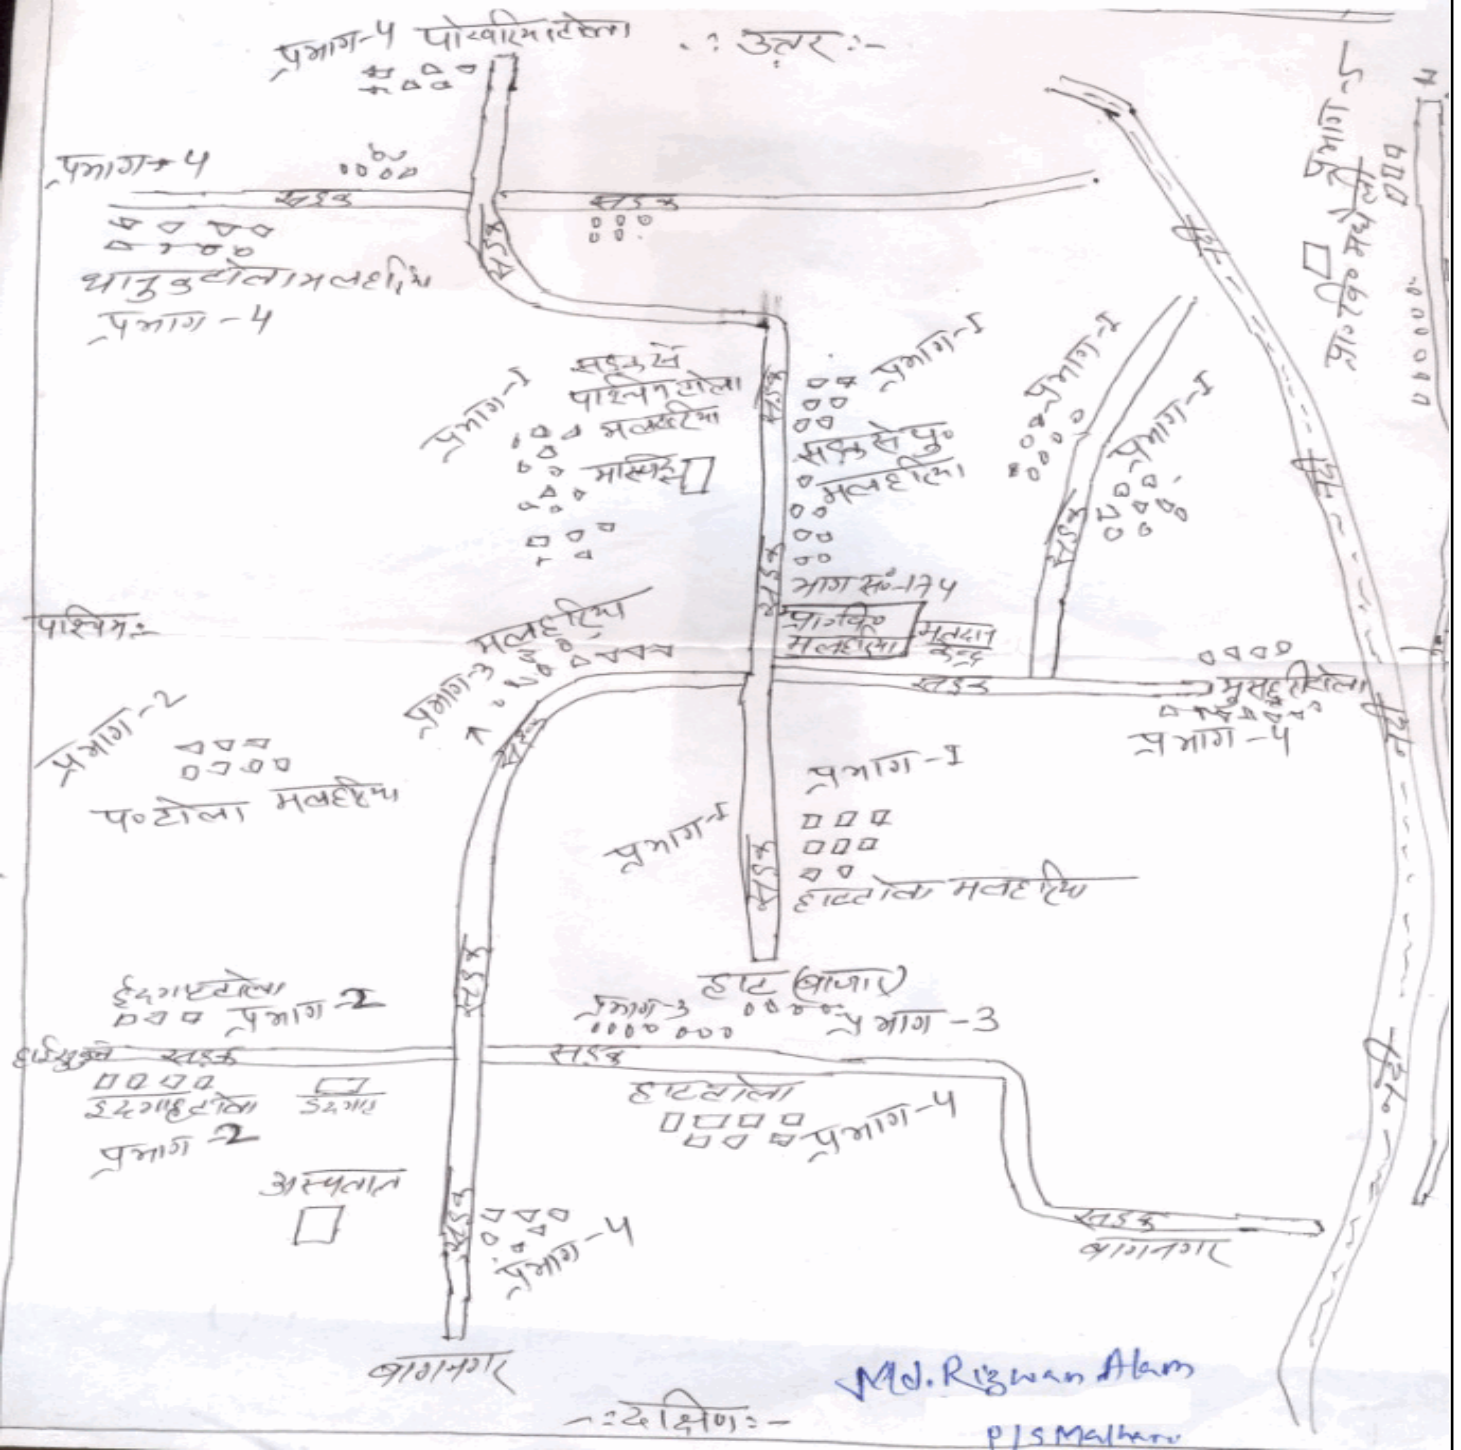 प्रभाग-4 पोखरिया टोला
-: उत्तर :-
प्रभाग-4
सड़क
सड़क
सड़क
धानुक टोला मलहरिया
प्रभाग-4
प्रभाग-5
प्रभाग-1
सड़क से
पश्चिम टोला
मलहरिया
मस्जिद
सड़क
प्रभाग-1
सड़क से पु०
मलहरिया
प्रभाग-1
प्रभाग-1
सड़क
सड़क
भाग सं०-174
प्रा० वि०
मलहरिया
मतदान
केन्द्र
पश्चिम:-
मलहरिया
प्रभाग-3
सड़क
सड़क
मुसहरी टोला
प्रभाग-4
प्रभाग-2
प० टोला मलहरिया
प्रभाग-1
प्रभाग-1
सड़क
हाटटोला मलहरिया
हाट (बाजार)
सड़क
ईदगाह टोला
प्रभाग-2
प्रभाग-3
प्रभाग-3
सड़क
सड़क
ईदगाह टोला
ईदगाह
प्रभाग-2
हाटटोला
प्रभाग-4
अस्पताल
सड़क
प्रभाग-4
सड़क
बागनगर
बागनगर
-: दक्षिण :-
Md. Rizwan Alam
P/S Malhari